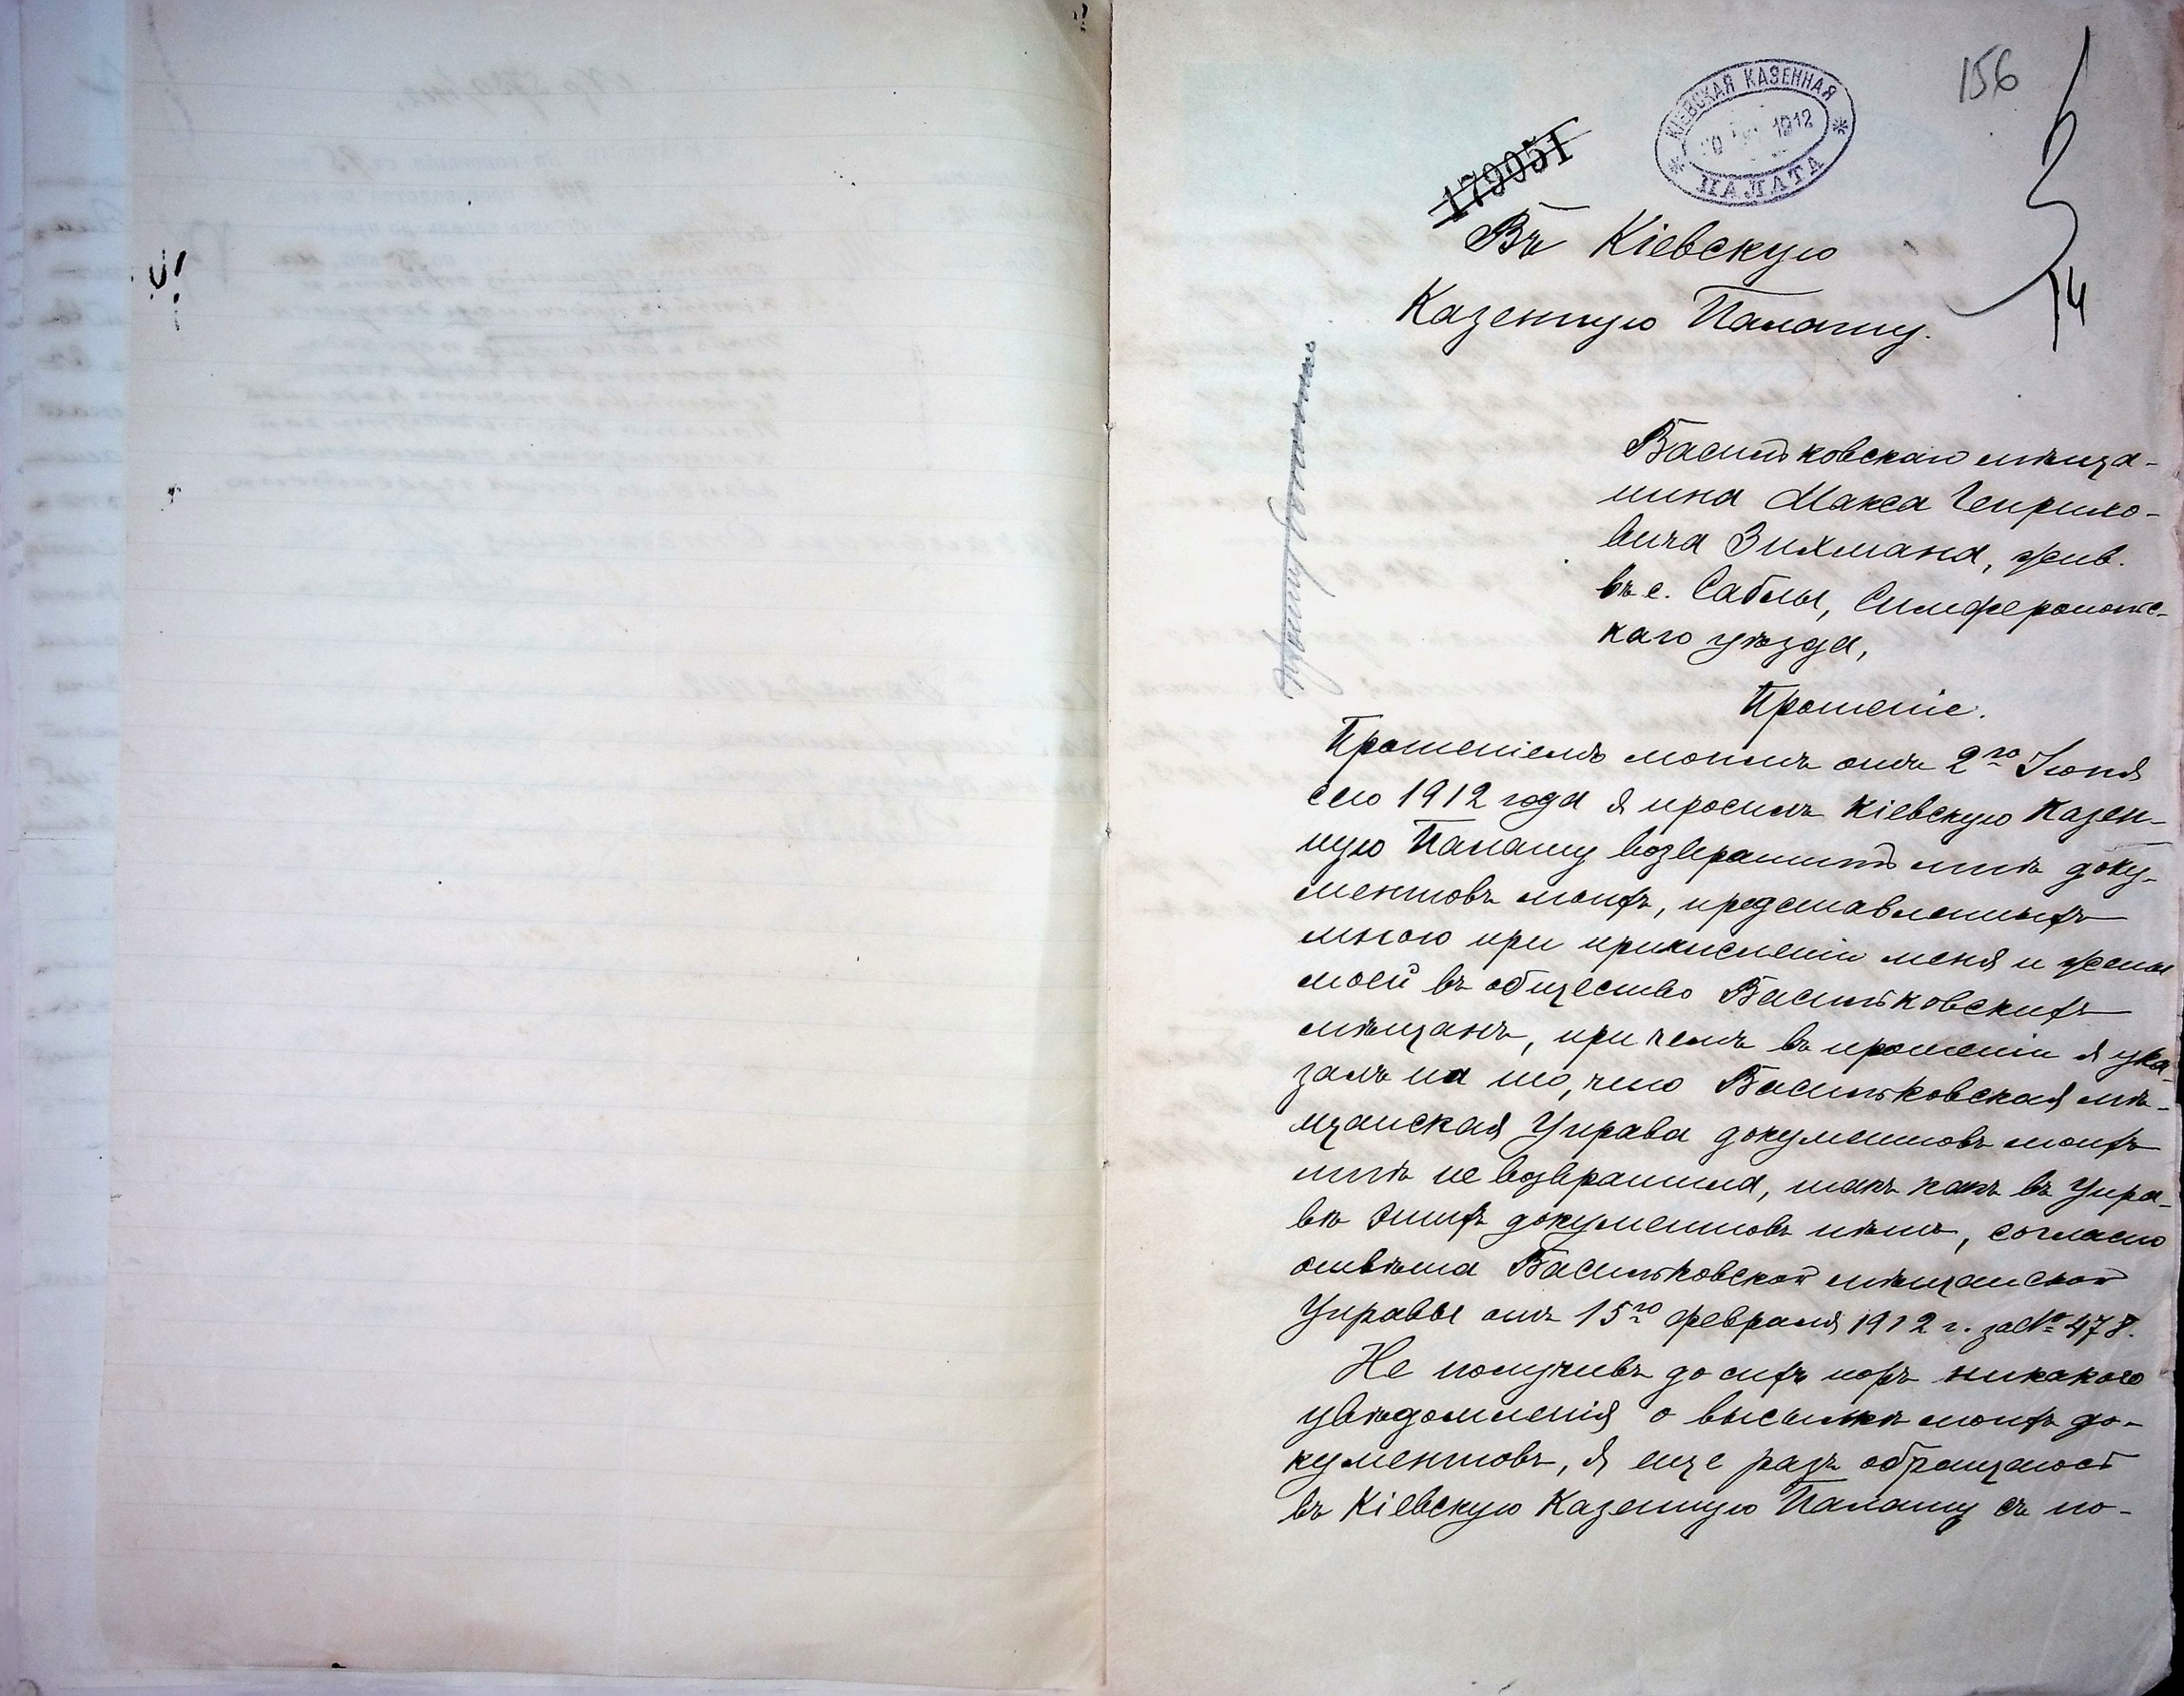 156
КІЕВСКАЯ КАЗЕННАЯ
1912
ПАЛАТА
179051
Въ Кіевскую
Казенную Палату.
Васильковскаго мѣща-
нина Макса Генрихо-
вича Зихмана, жив.
въ с. Саблы, Симферопольс-
каго уѣзда,
Прошеніе.
Прошеніемъ моимъ отъ 2го Іюня
сего 1912 года я просилъ Кіевскую Казен-
ную Палату возвратить мнѣ доку-
ментовъ моихъ, представленныхъ
мною при причисленіи меня и жены
моей въ общество Васильковскихъ
мѣщанъ, при чемъ въ прошеніи я ука-
залъ на то, что Васильковская мѣ-
щанская Управа документовъ моихъ
мнѣ не возвратила, такъ какъ въ Упра-
вѣ этихъ документовъ нѣтъ, согласно
отвѣта Васильковской мѣщанской
Управы отъ 15го февраля 1912 г. за № 478.
Не получивъ до сихъ поръ никакого
увѣдомленія о высылкѣ моихъ до-
кументовъ, я еще разъ обращаюсь
въ Кіевскую Казенную Палату съ по-